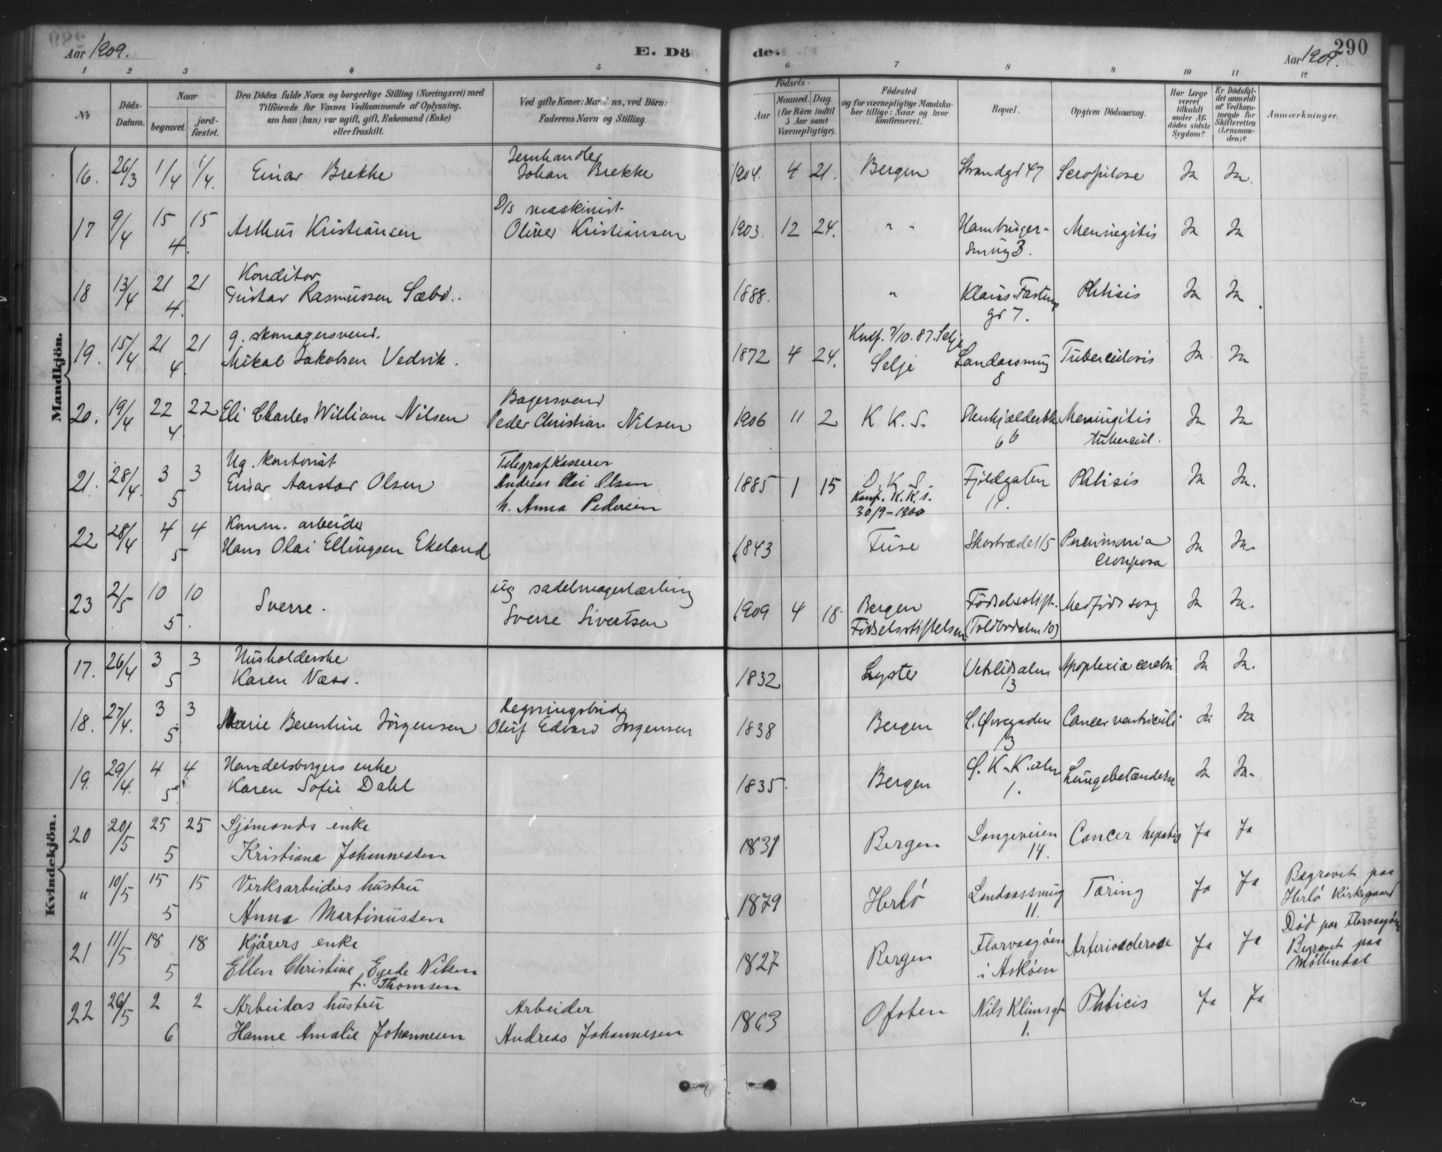 Aar 1909. E. Dö de. Aar 1909. 290
1 2 3 4 5 6 7 8 9 10 11 12
№
Döds-Datum.
Naar
begravet.
jord-fæstet.
Den Dödes fulde Navn og borgerlige Stilling (Næringsvei) med
Tilföiende for Voxnes Vedkommende af Oplysning,
om han (hun) var ugift, gift, Enkemand (Enke)
eller fraskilt.
Ved gifte Koner: Mandens, ved Börn:
Faderens Navn og Stilling.
Födsels-
Aar
Maaned Dag
(for Börn indtil
5 Aar samt
Værnepligtige).
Födested
og for værnepligtige Mandskaber tillige: Naar og hvor
konfirmeret.
Bopæl.
Opgiven Dödsaarsag.
Har Læge været tilkaldt under Afdödes sidste Sygdom?
Er Dödsfaldet anmeldt af Vedkommende for Skifteretten (Lensmanden)?
Anmærkninger.
Mandkjön.
Jernhandler
16. 26/3 1/4 1/4. Einar Brekke Johan Brekke 1904. 4 21. Bergen Strandgd 47 Scrofulose Ja Ja.
D/s maskinist
17 9/4 15/4. 15 Arthur Kristiansen Oliver Kristiansen 1903. 12 24. " " Hamburger-smug 3. Meningitis Ja Ja
Konditor
18 13/4 21/4. 21 Gustav Rasmussen Sæbö. 1888. " Klaus Fastings gd 7. Phtisis Ja Ja.
g. skomagersvend. Konf. 2/10. 87. Selje
19. 15/4 21/4 21 Mikal Jakobsen Vedvik. 1872 4 24. Selje Landaasmug 8 Tuberculosis Ja. Ja
Bagersvend
20. 19/4 22/4. 22 Eli Charles William Nilsen Peder Christian Nilsen 1906 11 2 K. K. S. 66 Meningitis tubercul. Ja Ja
Ug. kontorist Telegrafkasserer
21. 28/4. 3/5 3 Einar Aarstar Olsen Andreas Olai Olsen 1885 1 15 D. K. S. Fjeldgaten Phtisis Ja Ja.
h. Anna Pedersen Konf. K. K. S. 30/9-1900
Komm. arbeider
22 28/4 4/5 4 Hans Olai Ellingsen Ekeland 1843 Fuse Skostrædet 15 Pneumonia crouposa Ja Ja.
ug sadelmagerlærling
23 2/5 10/5. 10 Sverre. Sverre Sivertsen 1909 4 18. Bergen Födselsstiftelsen Födselsstift. (Toldbodalm 10) Medfödt svag Ja Ja.
Kvindekjön.
Husholderske
17. 26/4 3/5 3 Karen Næss. 1832 Lyster Vetrlidsalm 13 Apoplexia cerebri Ja Ja.
Regningsbud
18. 27/4. 3/5 3 Marie Berentine Jörgensen Oluf Edvard Jörgensen 1838 Bergen L. Øvregaden 13 Cancer ventriculi. Ja Ja
Handelsborgers enke
19. 29/4. 4/5. 4 Karen Sofie Dahl 1835. Bergen S. K. K. alm 1. Lungebetændelse Ja Ja.
Sjömands enke
20 20/5 25/5 25 Kristiana Johannessen 1831 Bergen Langeveien 14. Cancer hepatis Ja Ja
Verksarbeiders hustru
" 10/5 15/5 15 Anna Martinussen 1879 Herlö Landaassmug 11. Tæring Ja Ja Begravet paa Herlö Kirkegaard
Kjörers enke
21 11/5 18/5 18 Ellen Christine Egede Nilsen f. Thomsen 1827 Bergen Florvaagöen i Asköen Arteriosclerose Ja Ja Död paa Florvaagöen Begravet paa Möllendal
Arbeiders hustru Arbeider
22 26/5 2/6 2 Hanne Amalie Johannesen Andreas Johannesen 1863 Ofoten Nils Klimsgt 1. Phticis Ja Ja